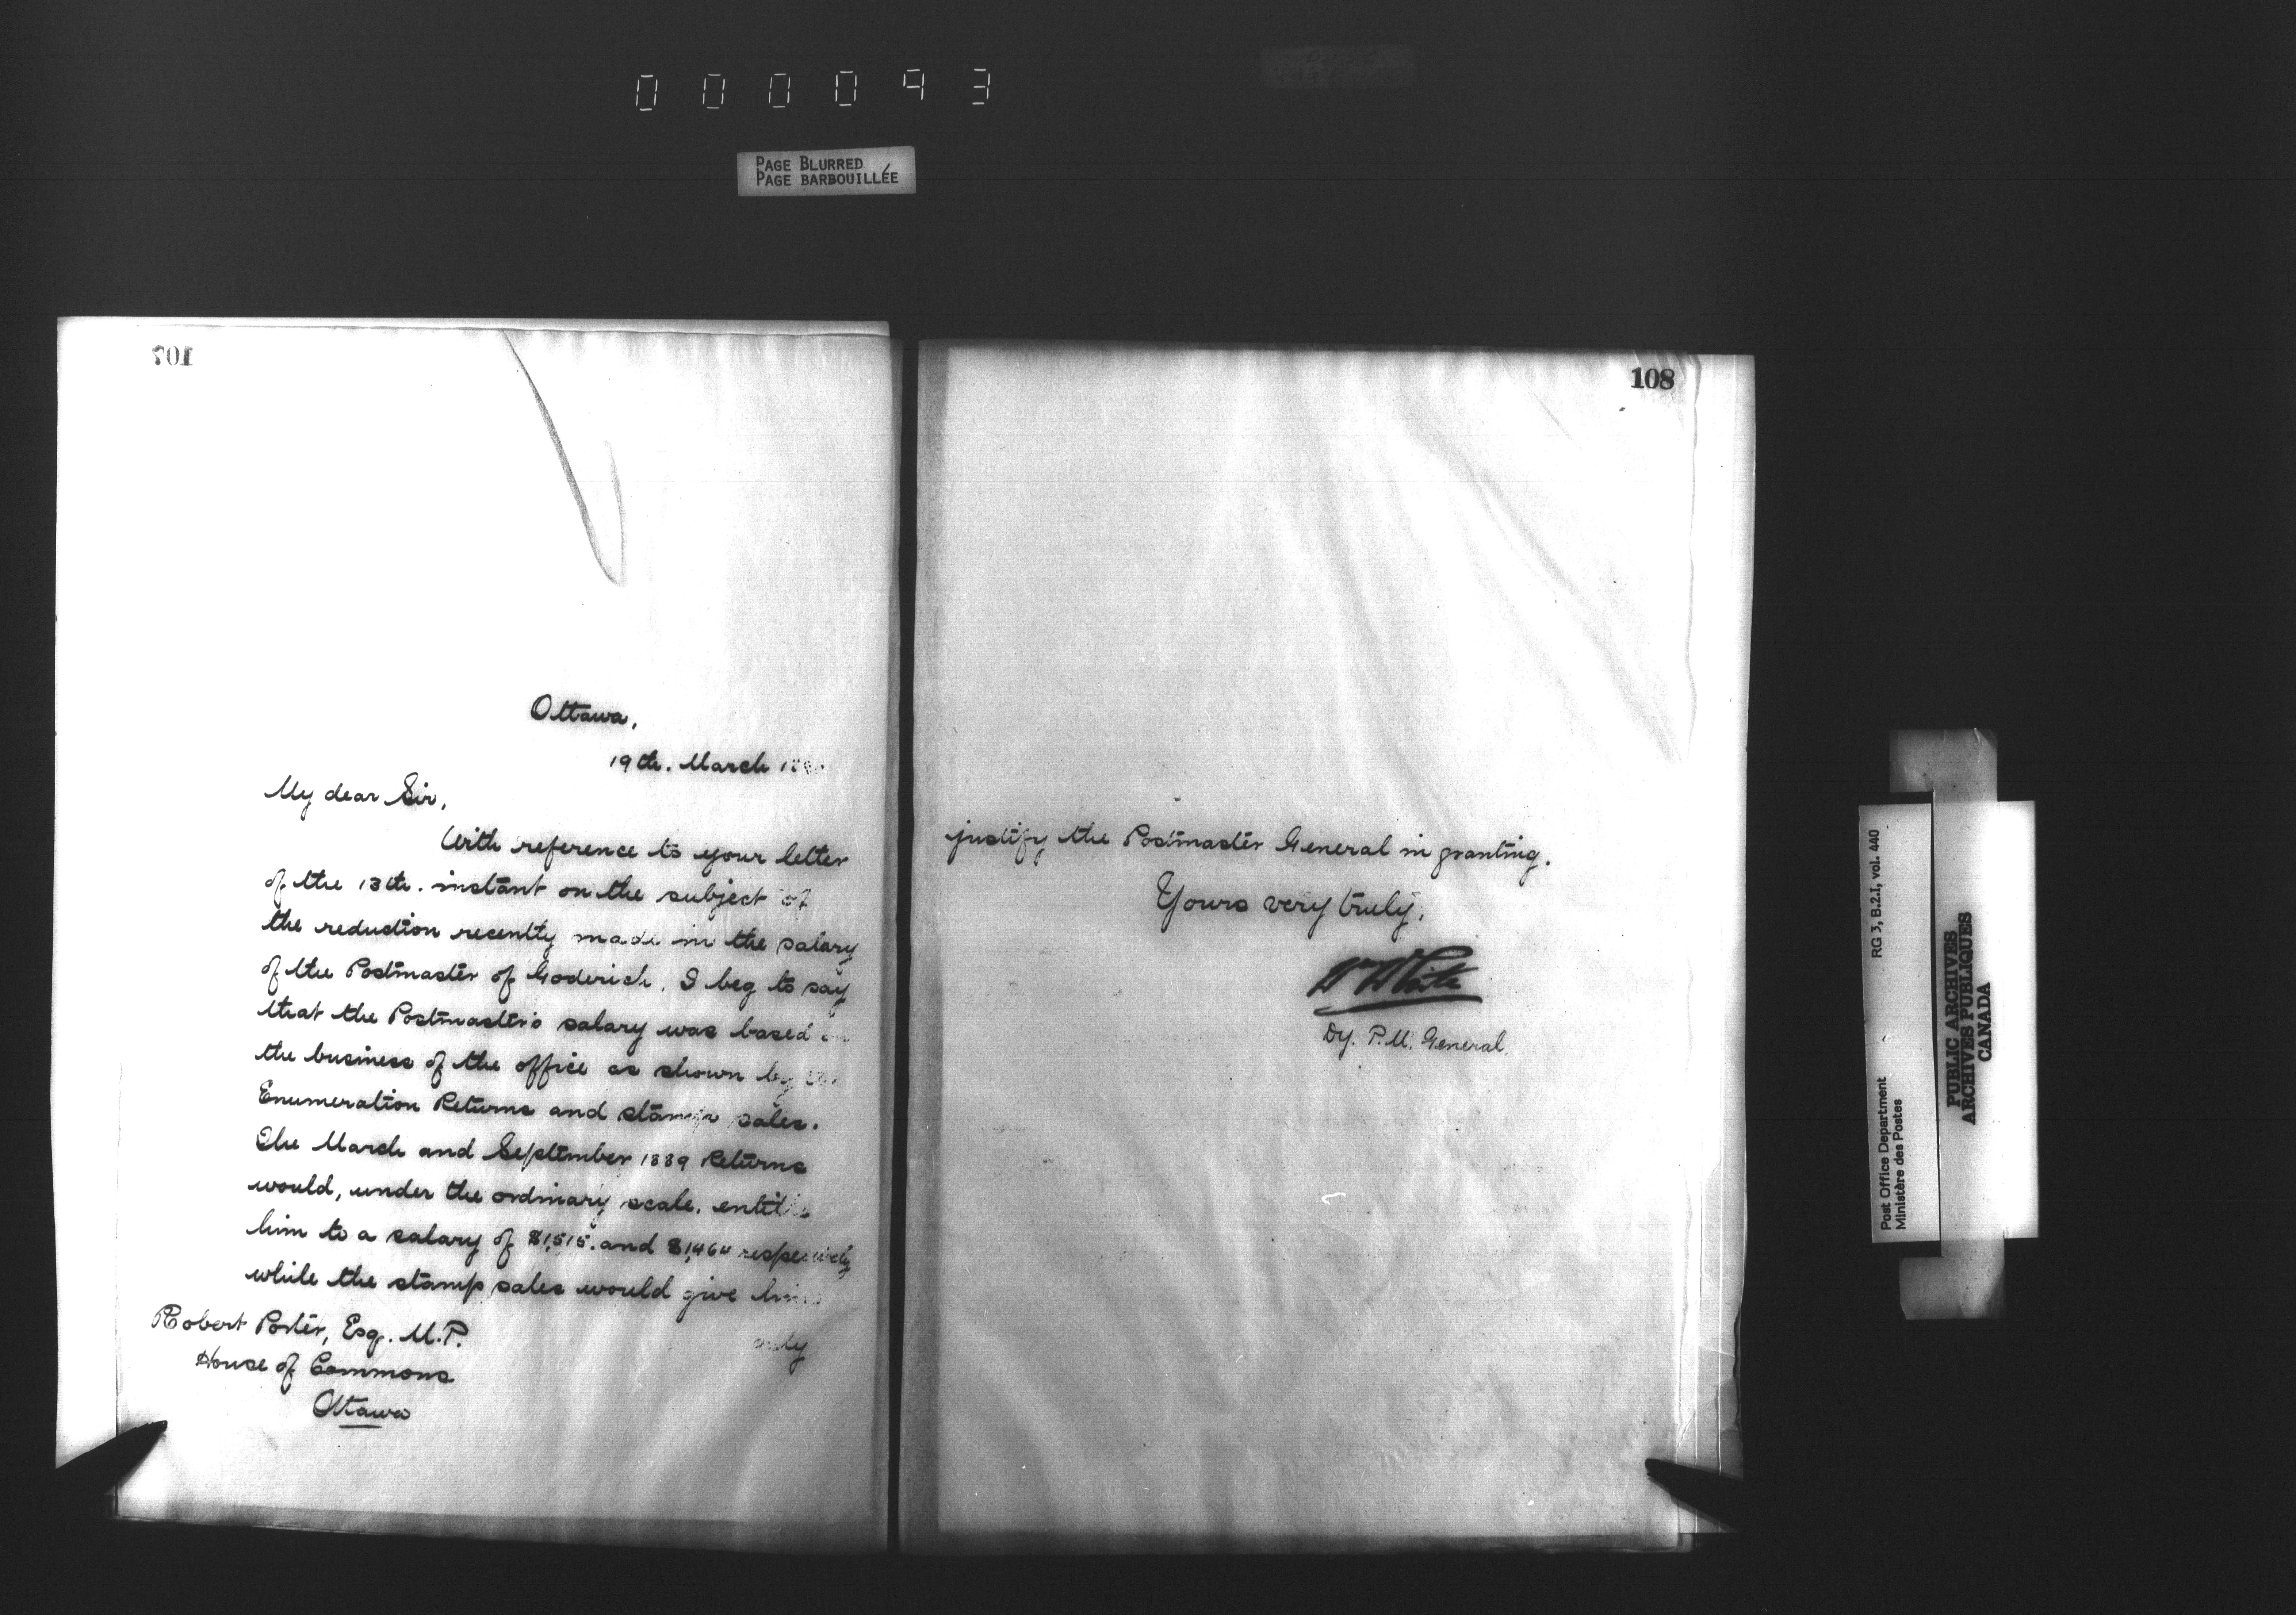 000093
PAGE BLURRED
PAGE BARBOUILLÉE
107
Ottawa,
19th. March
My dear Sir,
With reference to your letter
of the 13th. instant on the subject of
the reduction recently made in the salary
of the Postmaster of Goderich, I beg to say
that the Postmaster's salary was based on
the business of the office as shown by the
Enumeration Returns and stamp sales.
The March and September 1889 Returns
would, under the ordinary scale, entitle
him to a salary of $1,515. and $1,460 respectively
while the stamp sales would give him
only
Robert Porter, Esq. M.P.
House of Commons
Ottawa
108
justify the Postmaster General in granting.
Yours very truly,
Wm White
Dy. P.M. General.
Post Office Department
Ministère des Postes
RG 3, B.2.I, vol. 440
PUBLIC ARCHIVES
ARCHIVES PUBLIQUES
CANADA